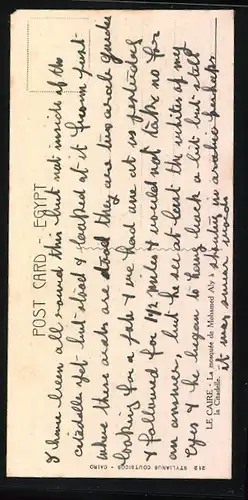 POST CARD - EGYPT
I have been all round this but not inside of the
citadelle yet but stood & looked at it from just
where these arabs are stood they are two arab guides
looking for a job & we had one at us yesterday
& followed for 1½ miles & would not take no for
an answer, but he see at least the whites of my
eyes & he began to hang back a bit but still
shouting in arabic perhaps
it may swear words
LE CAIRE - La mosquée de Mohamed Aly à
la Citadelle.
212 STYLIANOS COUTSICOS CAIRO